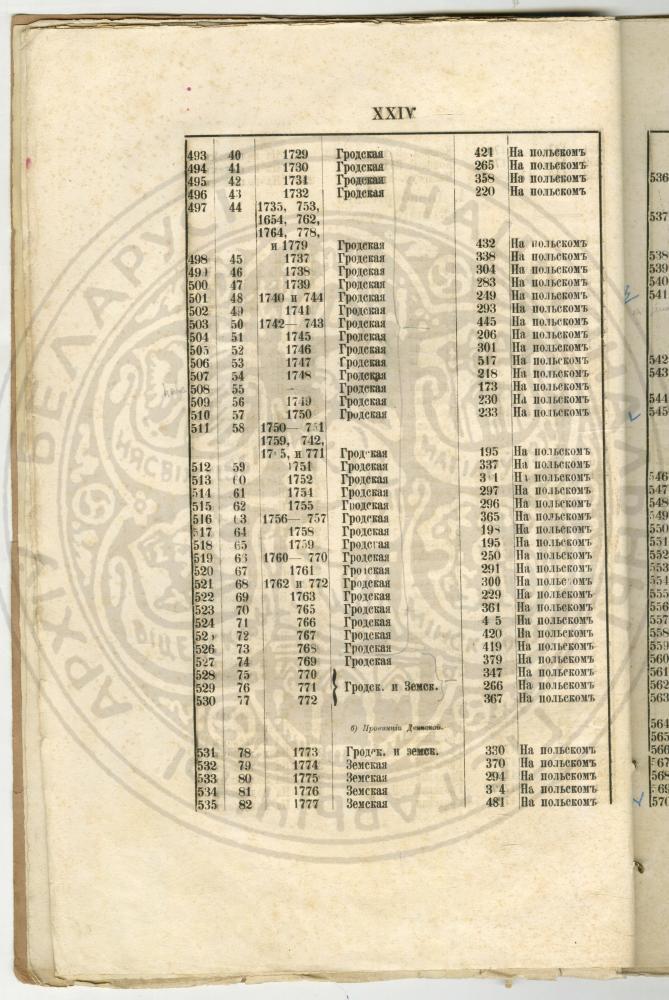 XXIV
493 40 1729 Гродская 421 На польскомъ
494 41 1730 Гродская 265 На польскомъ
495 42 1731 Гродская 358 На польскомъ
496 43 1732 Гродская 220 На польскомъ
497 44 1735, 753,
1654, 762,
1764, 778,
и 1779 Гродская 432 На польскомъ
498 45 1737 Гродская 338 На польскомъ
499 46 1738 Гродская 304 На польскомъ
500 47 1739 Гродская 283 На польскомъ
501 48 1740 и 744 Гродская 249 На польскомъ
502 49 1741 Гродская 293 На польскомъ
503 50 1742— 743 Гродская 445 На польскомъ
504 51 1745 Гродская 206 На польскомъ
505 52 1746 Гродская 301 На польскомъ
506 53 1747 Гродская 517 На польскомъ
507 54 1748 Гродская 218 На польскомъ
508 55 – Гродская 173 На польскомъ
509 56 1749 Гродская 230 На польскомъ
510 57 1750 Гродская 233 На польскомъ
511 58 1750— 751
1759, 742,
и 771 Гродская 195 На польскомъ
512 59 1751 Гродская 337 На польскомъ
513 60 1752 Гродская На польскомъ
514 61 1754 Гродская 297 На польскомъ
515 62 1755 Гродская 296 На польскомъ
516 63 1756— 757 Гродская 365 На польскомъ
517 64 1758 Гродская 198 На польскомъ
518 65 1759 Гродская 195 На польскомъ
519 66 1760— 770 Гродская 250 На польскомъ
520 67 1761 Гродская 291 На польскомъ
521 68 1762 и 772 Гродская 300 На польскомъ
522 69 1763 Гродская 229 На польскомъ
523 70 765 Гродская 361 На польскомъ
524 71 766 Гродская На польскомъ
525 72 767 Гродская 420 На польскомъ
526 73 768 Гродская 419 На польскомъ
527 74 769 Гродская 379 На польскомъ
528 75 770 347 На польскомъ
529 76 771 Гродск. и Земск. 266 На польскомъ
530 77 772 367 На польскомъ
б) Провинціи Двинской.
531 78 1773 Гродск. и земск. 330 На польскомъ
532 79 1774 Земская 370 На польскомъ
533 80 1775 Земская 294 На польскомъ
534 81 1776 Земская На польскомъ
535 82 1777 Земская 481 На польскомъ
536
537
538
539
540
541
542
543
544
545
546
547
548
549
550
551
552
553
554
555
556
557
558
559
560
561
562
563
564
565
566
567
568
569
570